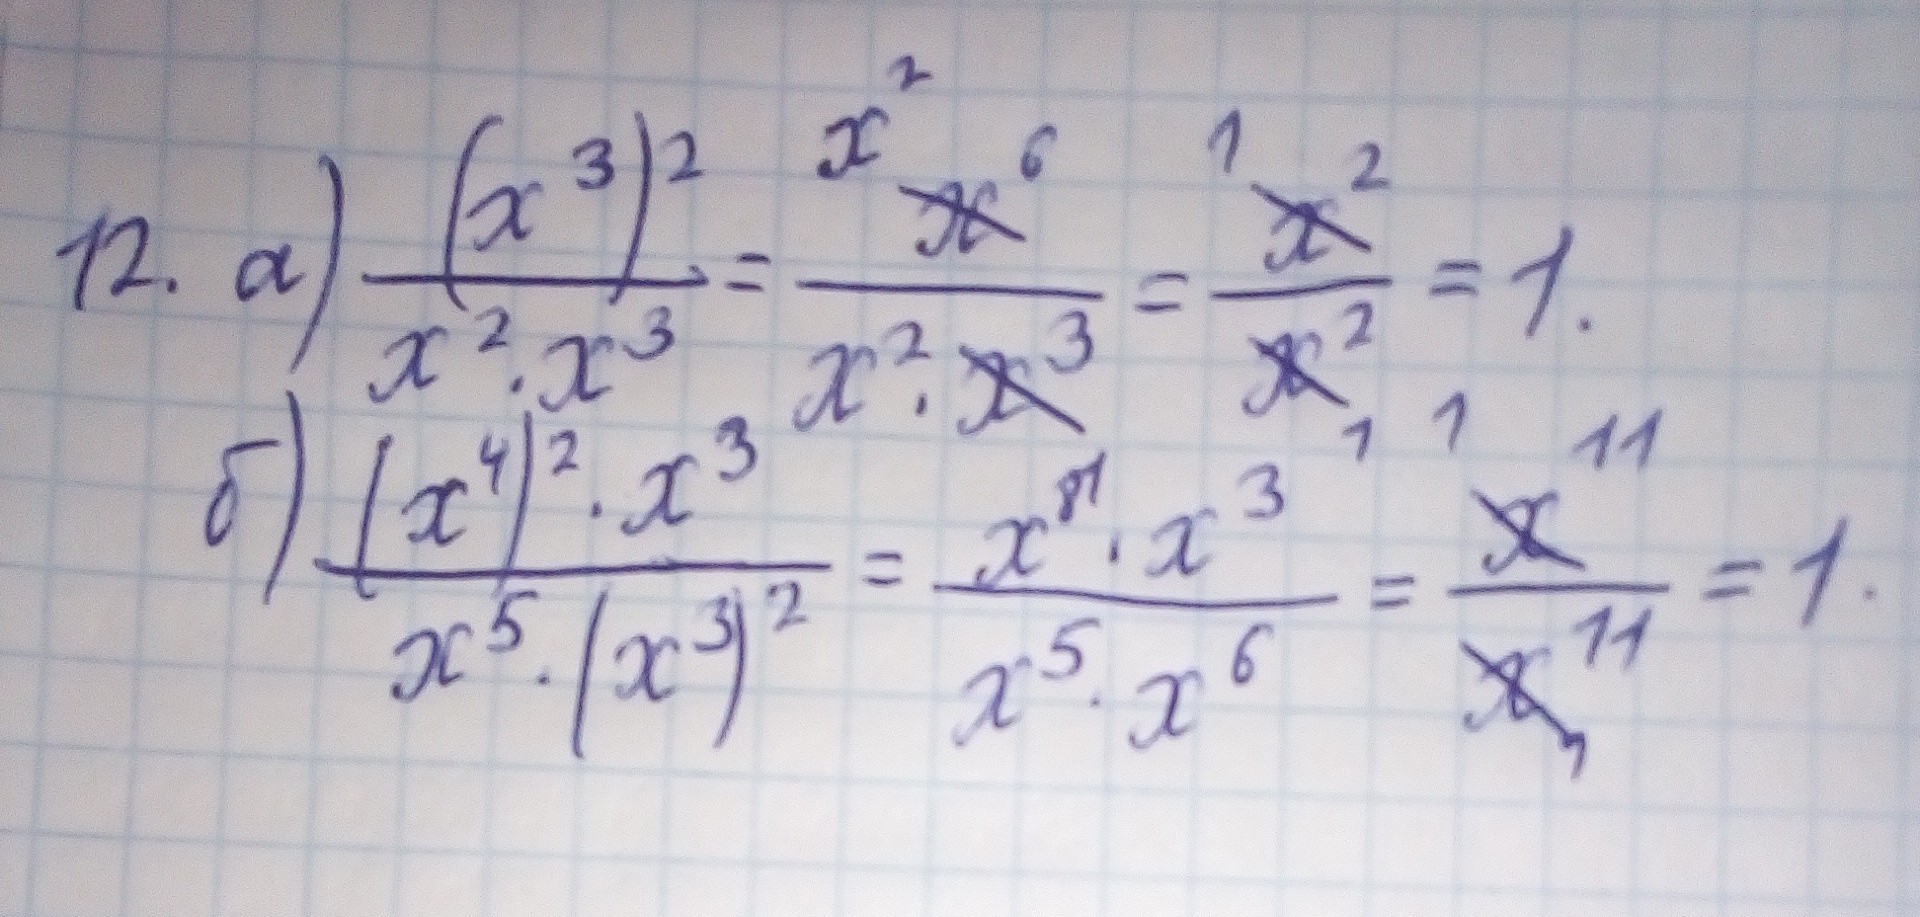 12. а) (x³)² / x² · x³ = x² x⁶ / x² · x³ = 1 x² / x² 1 = 1.
б) (x⁴)² · x³ / x⁵ · (x³)² = x⁸ · x³ / x⁵ · x⁶ = 1 x¹¹ / x¹¹ 1 = 1.